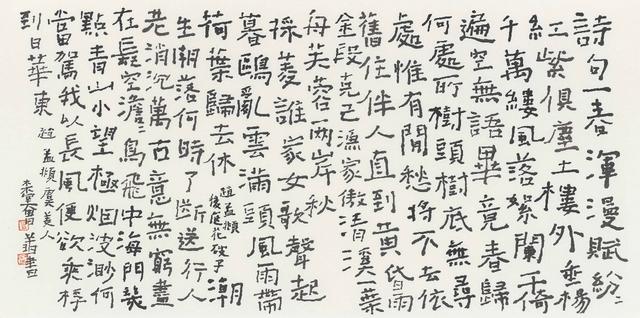 詩句一春渾漫賦紛々
紅紫俱塵土樓外垂楊
千萬縷風落絮闌干倚
遍空無語畢竟春歸
何處所樹頭樹底無尋
處惟有閒愁將不去依
舊住伴人直到黃昏雨
金段克己漁家傲清溪一葉
舟芙蓉兩岸秋
採菱誰家女歌聲起
暮鷗亂雲滿頭風雨帶
荷葉歸去休 趙孟頫後庭花破子 潮
生潮落何時了斷送行人
老消沉萬古意無窮盡
在長空澹々鳥飛中海門幾
點青山小望極烟波渺何
當駕我以長風便欲乘桴
到日華東 趙孟頫虞美人